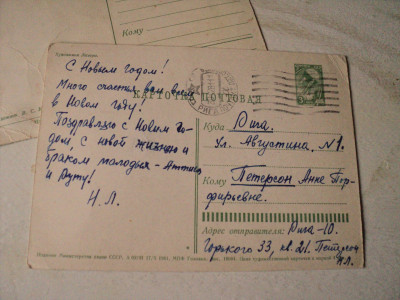 Кому
С Новым годом!
Много счастья вам всем
в Новом году!
Поздравляю с Новым го-
дом, с новой жизнью и
браком молодых -
и Руту!
Н. Л.
КАРТОЧКА ПОЧТОВАЯ
Куда Рига,
ул. Августина, № 1.
Кому Петерсон Анне Пор-
фирьевне.
Адрес отправителя: Рига-10.
Горького 33, кв. 21. Петерсон
Н.Л.